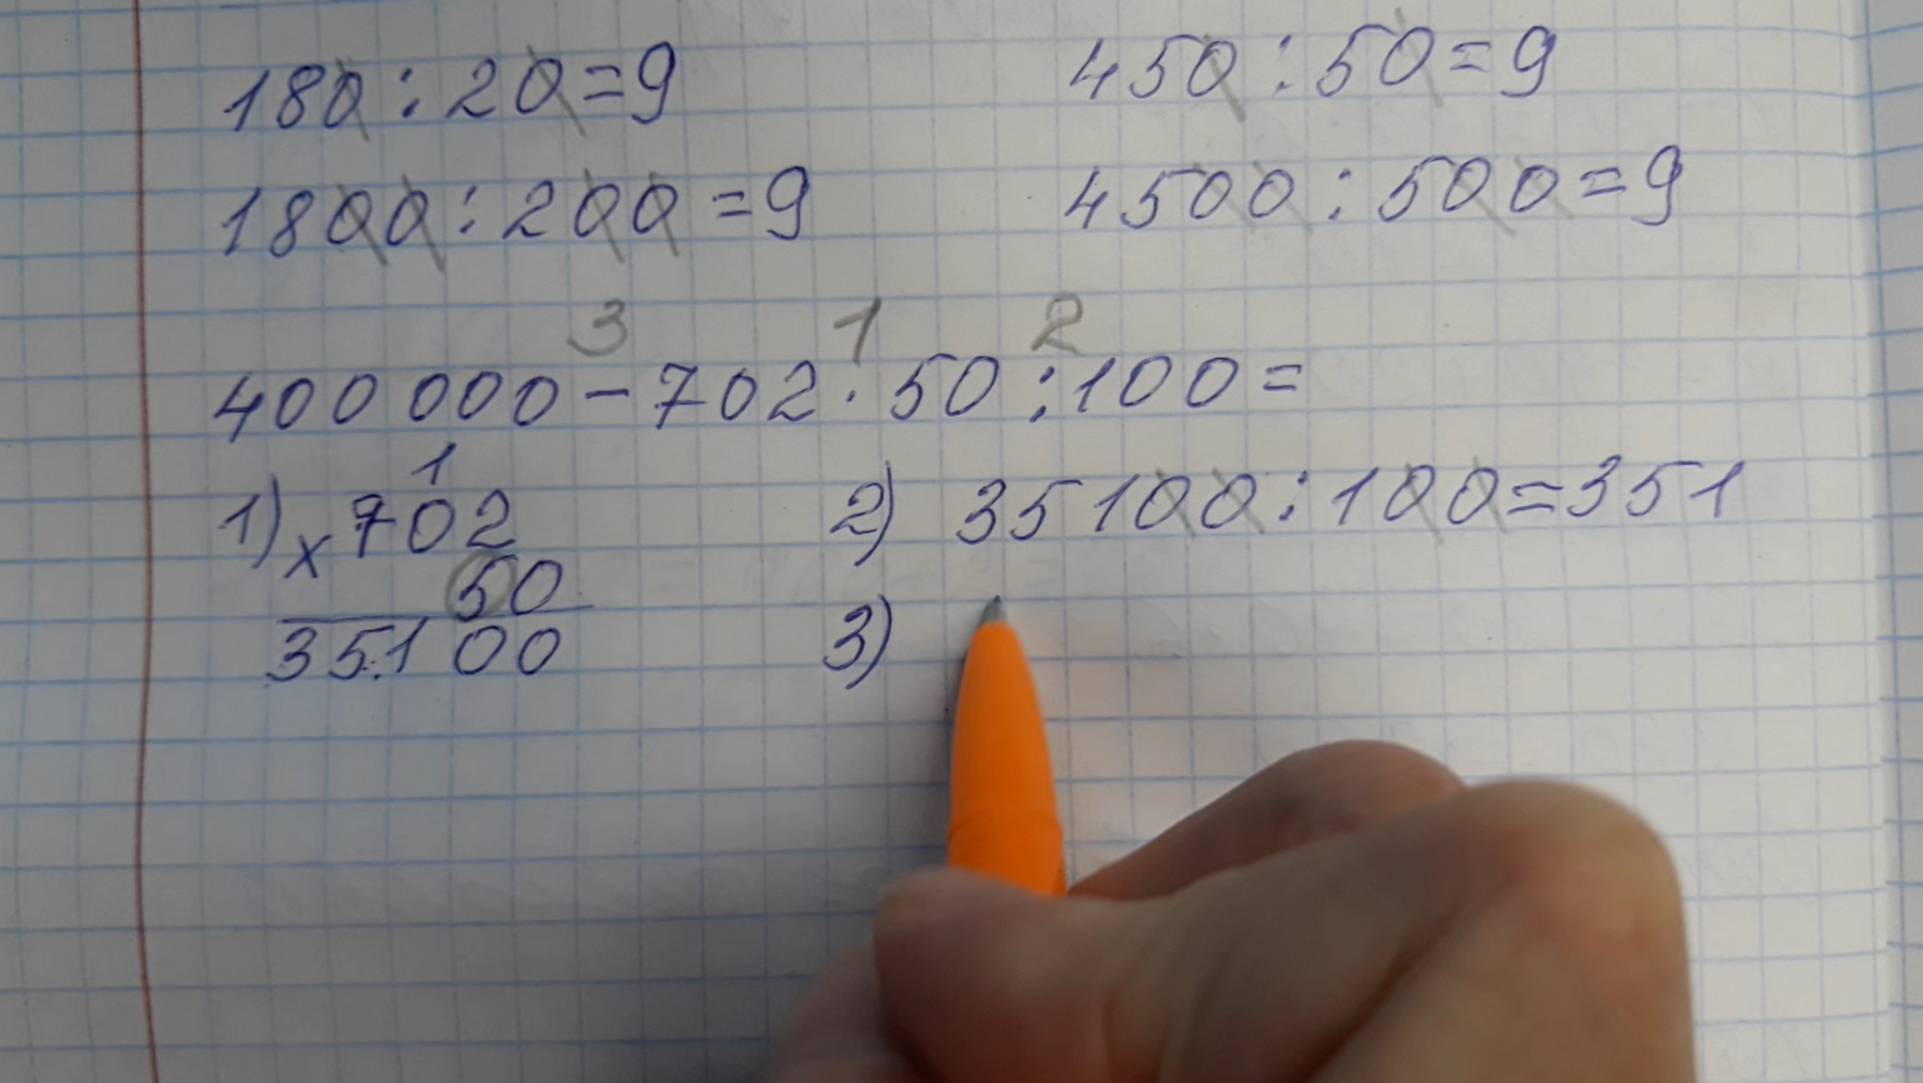 180 : 20 = 9
450 : 50 = 9
1800 : 200 = 9
4500 : 500 = 9
3 1 2
400 000 - 702 · 50 : 100 =
1
1) x 702
50
35100
2) 35100 : 100 = 351
3)